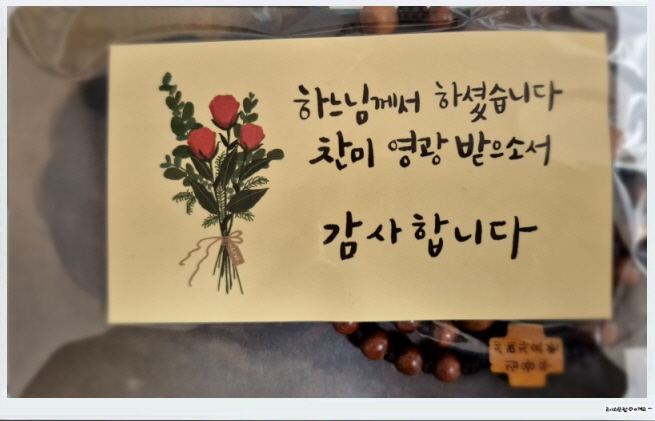 하느님께서 하셨습니다
찬미 영광 받으소서
감사합니다